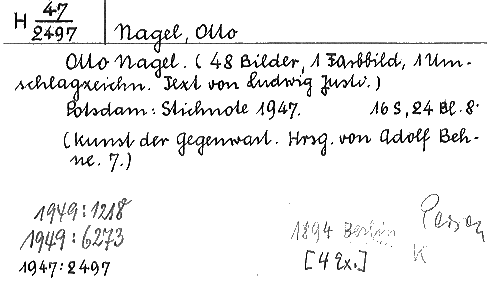 H 47/2497 Nagel, Otto
Otto Nagel. (48 Bilder, 1 Farbbild, 1 Um-
schlagzeichn. Text von Ludwig Justi.)
Potsdam: Stichnote 1947. 16 S, 24 Bl. 8°
(Kunst der Gegenwart. Hrsg. von Adolf Beh-
ne. 7.)
1949:1218
1949:6273
1947:2497
1894 Berlin
[4 Ex.]
K